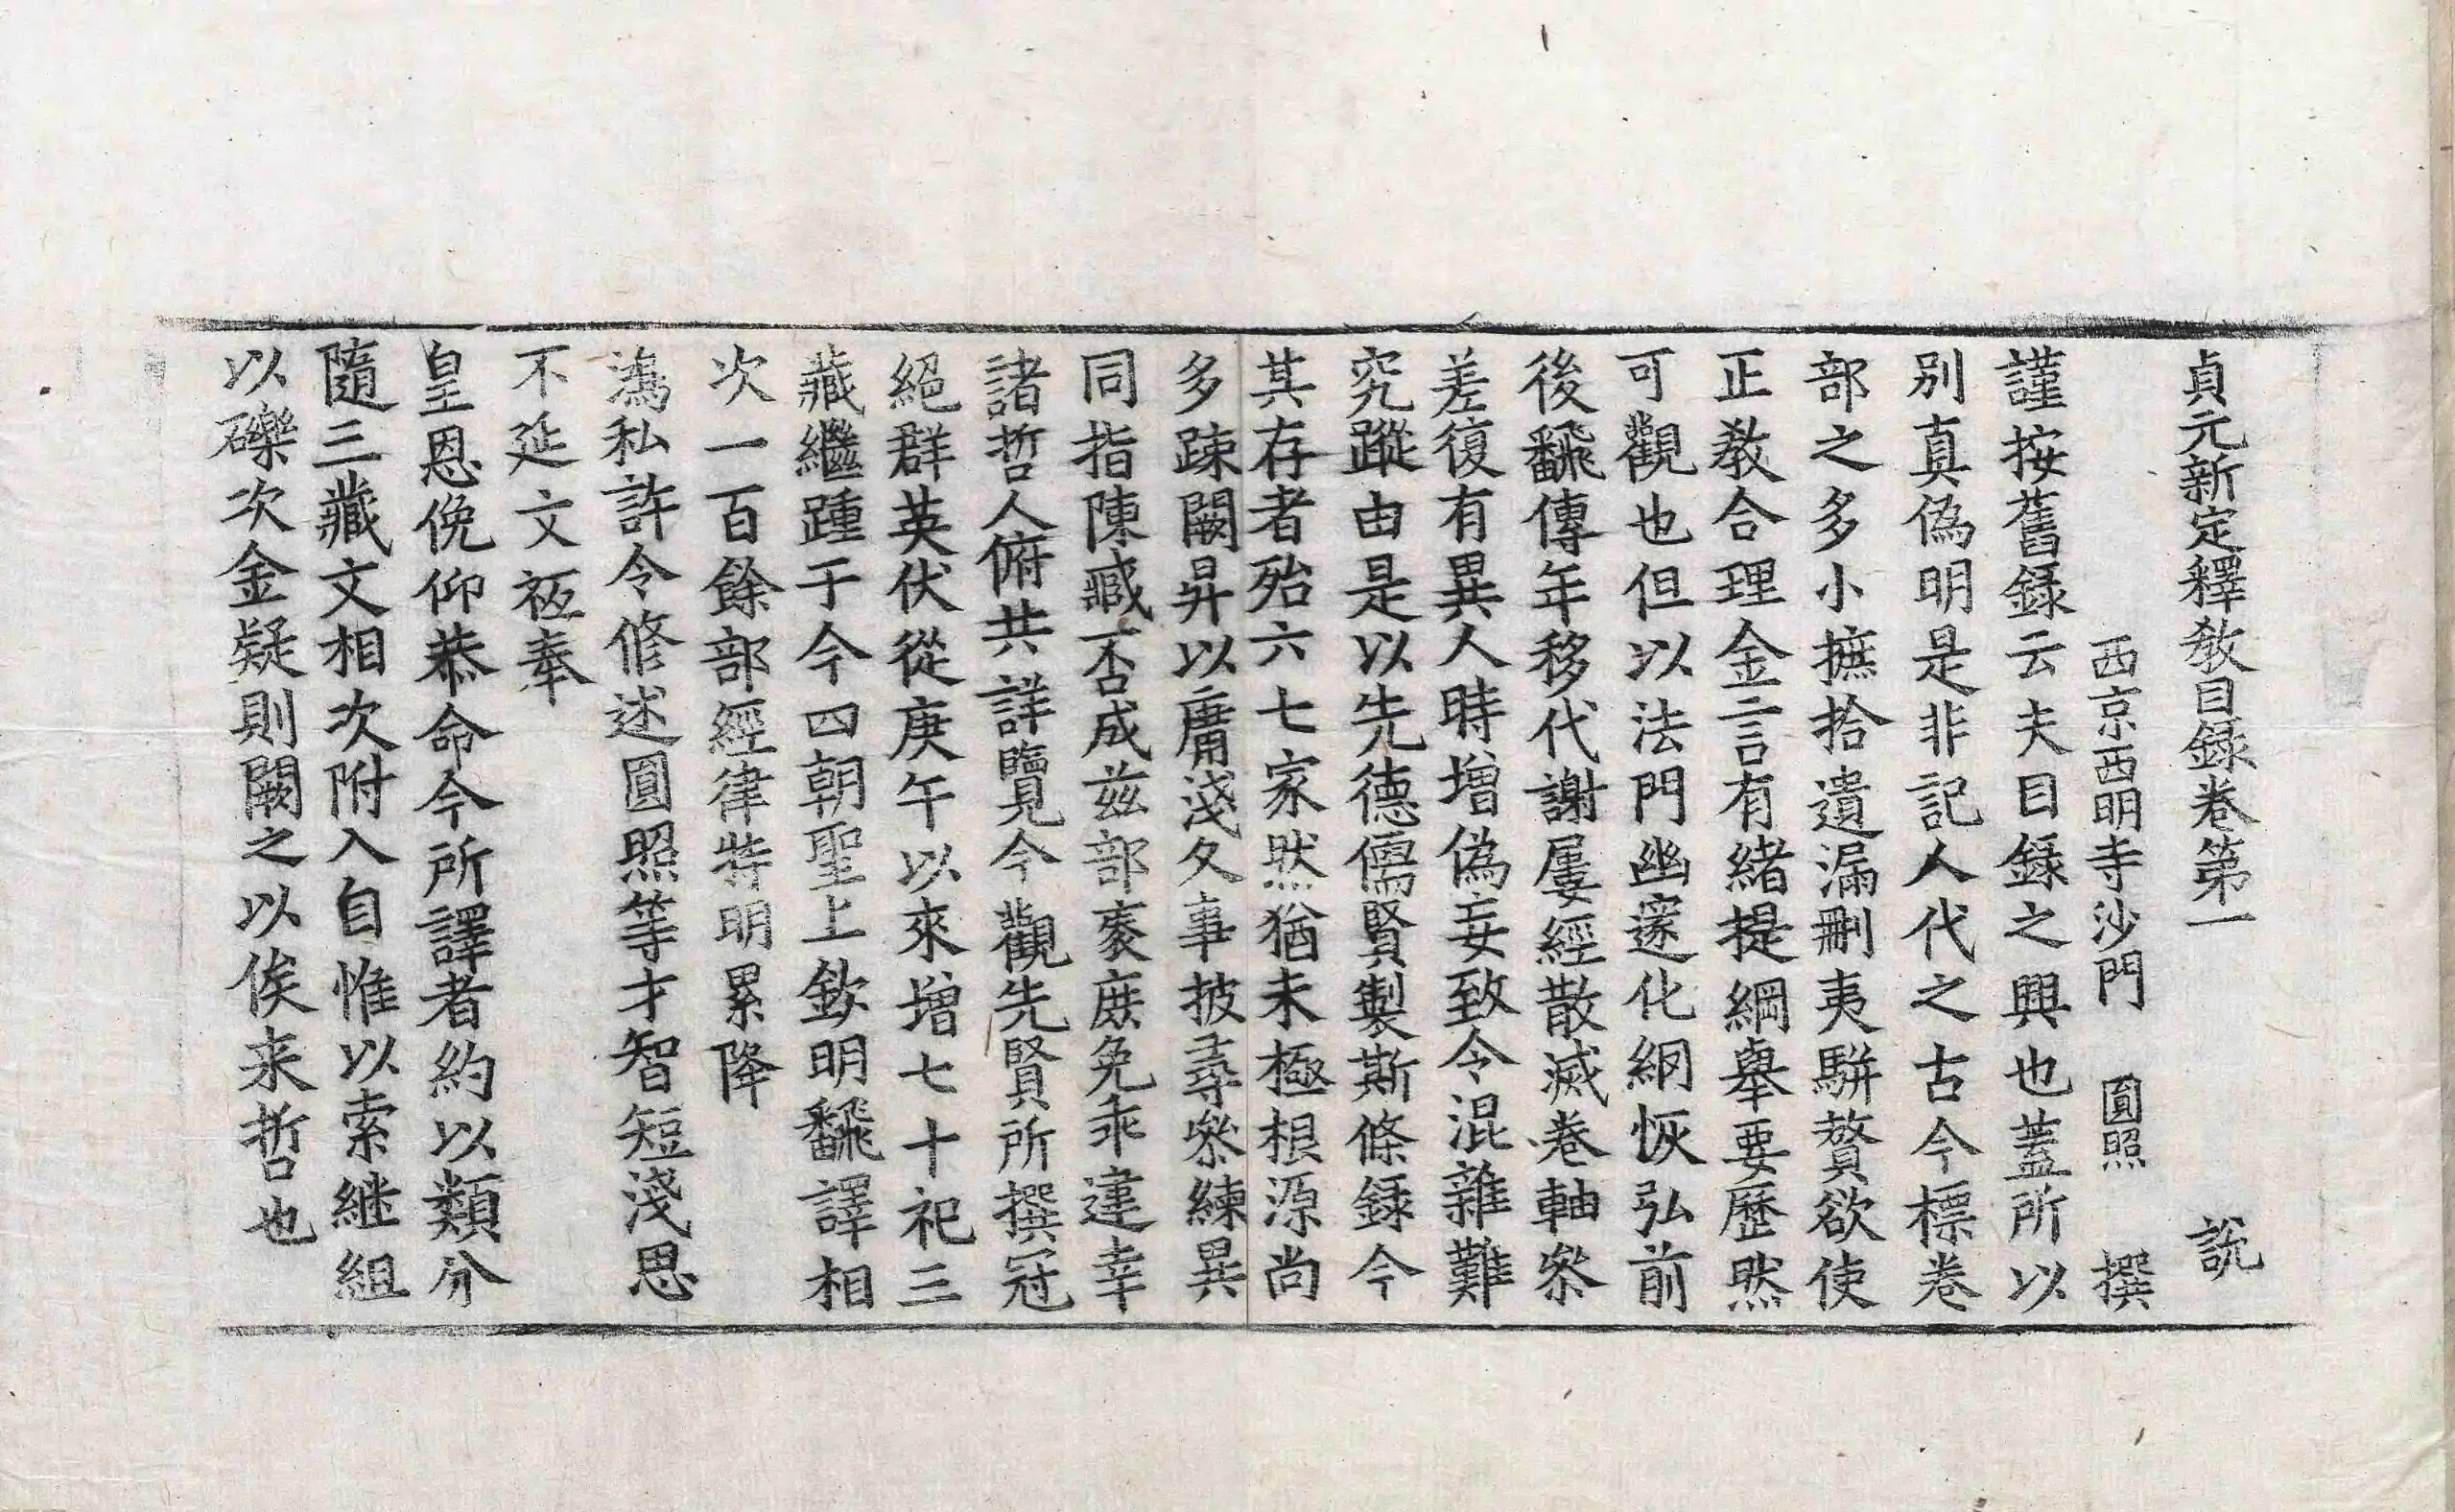 貞元新定釋敎目録卷第一 説
西京西明寺沙門 圓照 撰
謹按舊録云夫目録之興也蓋所以
別真偽明是非記人代之古今標卷
部之多小摭拾遺漏刪夷駢贅欲使
正敎合理金言有緖提綱舉要歷然
可觀也但以法門幽邃化網恢弘前
後飜傳年移代謝屢經散滅卷軸叅
差復有異人時增偽妄致令混雜難
究蹤由是以先德儒賢製斯條録今
其存者殆六七家然猶未極根源尚
多踈闕昇以庸淺久事披尋叅練異
同指陳臧否成玆部袠庶免乖違幸
諸哲人俯共詳覽今觀先賢所撰冠
絕群英伏從庚午以來增七十祀三
藏繼踵于今四朝聖上欽明飜譯相
次一百餘部經律特明累降
鴻私許令修述圓照等才智短淺思
不延文祗奉
皇恩俛仰恭命今所譯者約以類分
隨三藏文相次附入自惟以索継組
以礫次金疑則闕之以俟来哲也